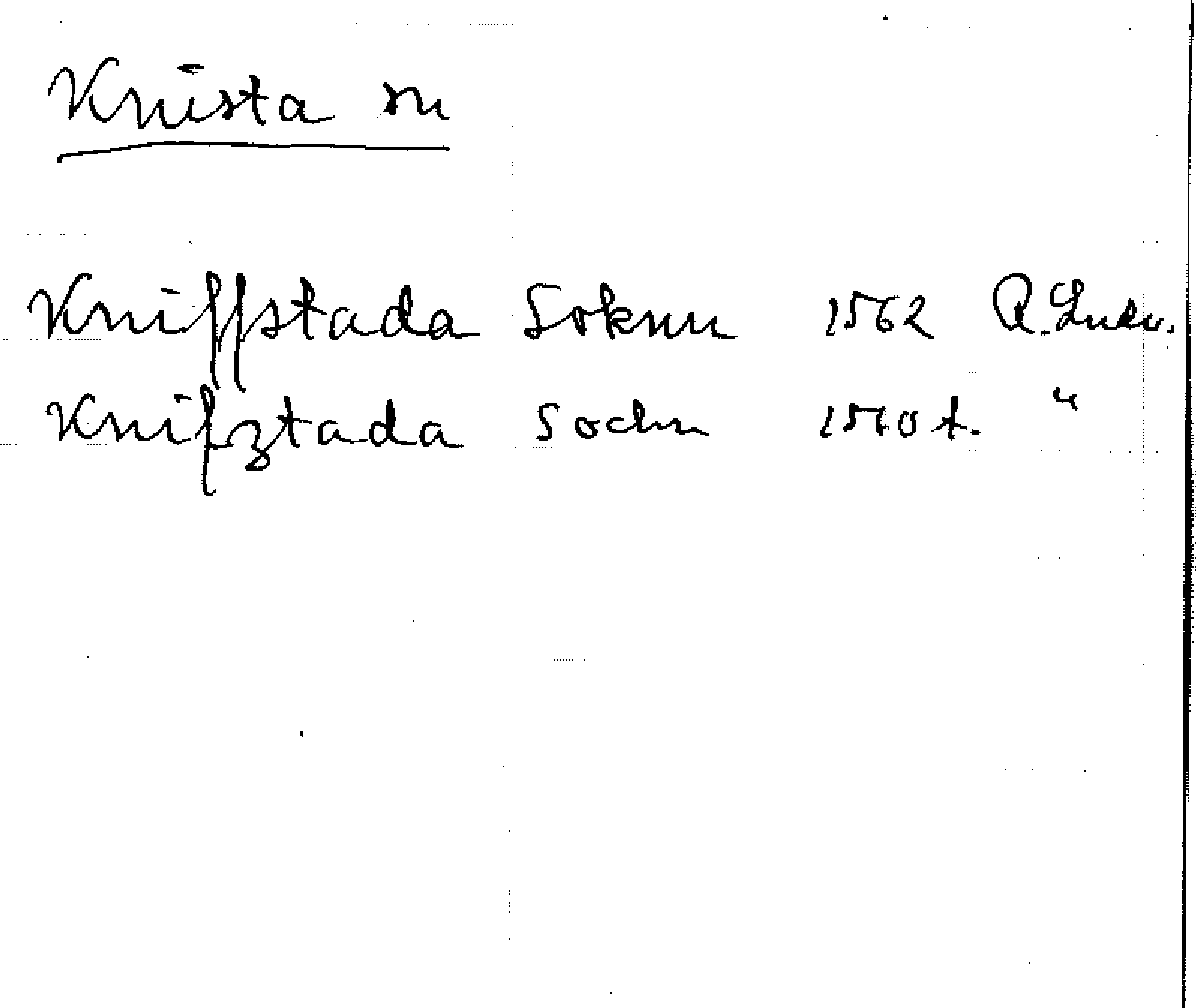 Knista sn
Kniffstada Soknn 1562
Knifztada Sochn 1540 t. "